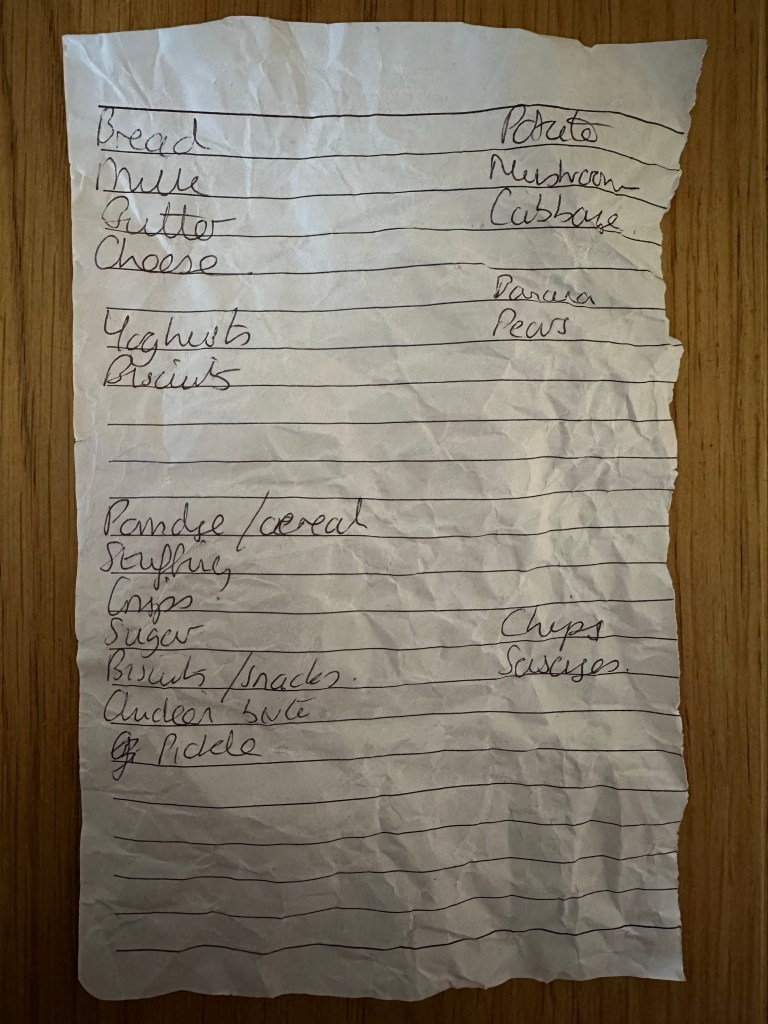 Bread
Milk
Butter
Cheese
Yoghurts
Biscuits
Porridge / cereal
Stuffing
Crisps
Sugar
Biscuits / snacks.
Pickle
Potato
Mushroom
Cabbage.
Banana
Pears
Chips
Sausages.